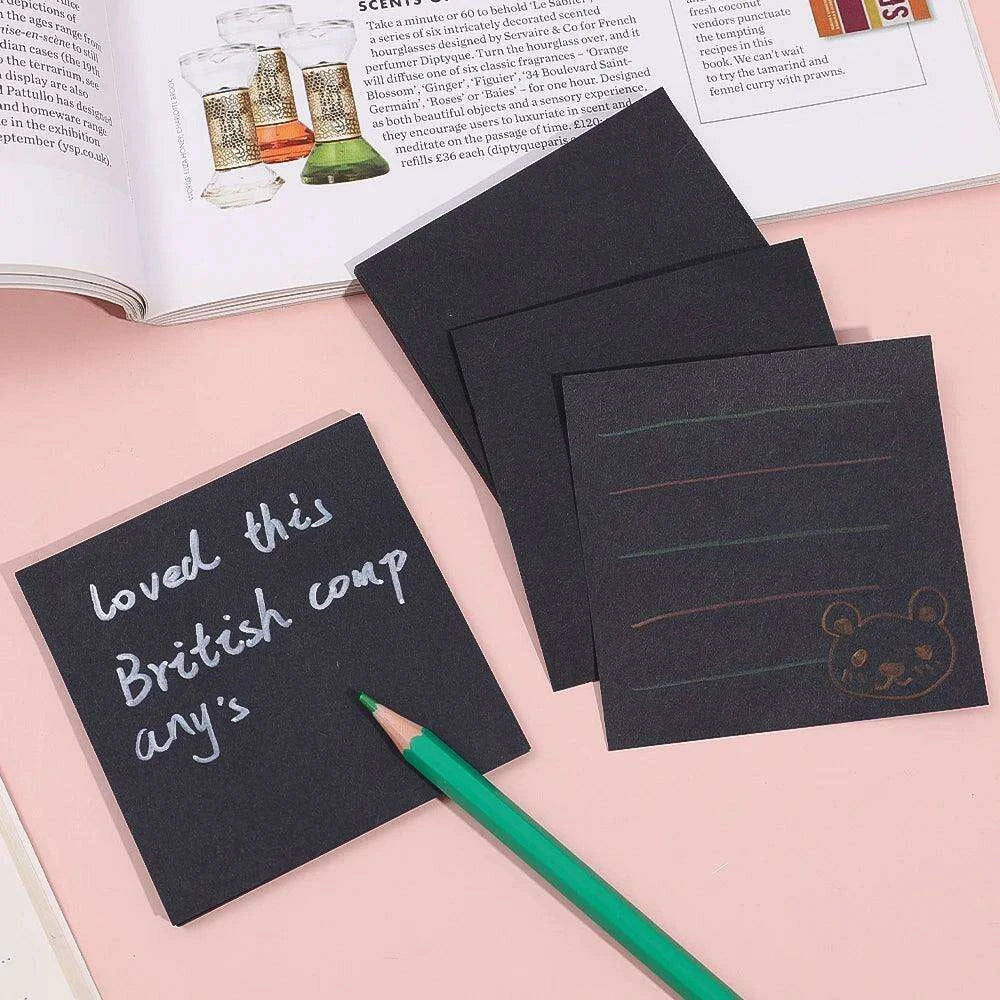 depictions of
n the ages range from
mise-en-scène to still
dian cases (the 19th
to the terrarium, see
display are also
Pattullo has designed
and homeware range
e in the exhibition
eptember (ysp.co.uk).
SCENTS O
Take a minute or 60 to behold 'Le Sablier',
a series of six intricately decorated scented
hourglasses designed by Servaire & Co for French
perfumer Diptyque. Turn the hourglass over, and it
will diffuse one of six classic fragrances – 'Orange
Blossom', 'Ginger', 'Figuier', '34 Boulevard Saint-
Germain', 'Roses' or 'Baies' – for one hour. Designed
as both beautiful objects and a sensory experience,
they encourage users to luxuriate in scent and
meditate on the passage of time. £120;
refills £36 each (diptyqueparis.c
fresh coconut
vendors punctuate
the tempting
recipes in this
book. We can't wait
to try the tamarind and
fennel curry with prawns.
loved this
British comp
any's